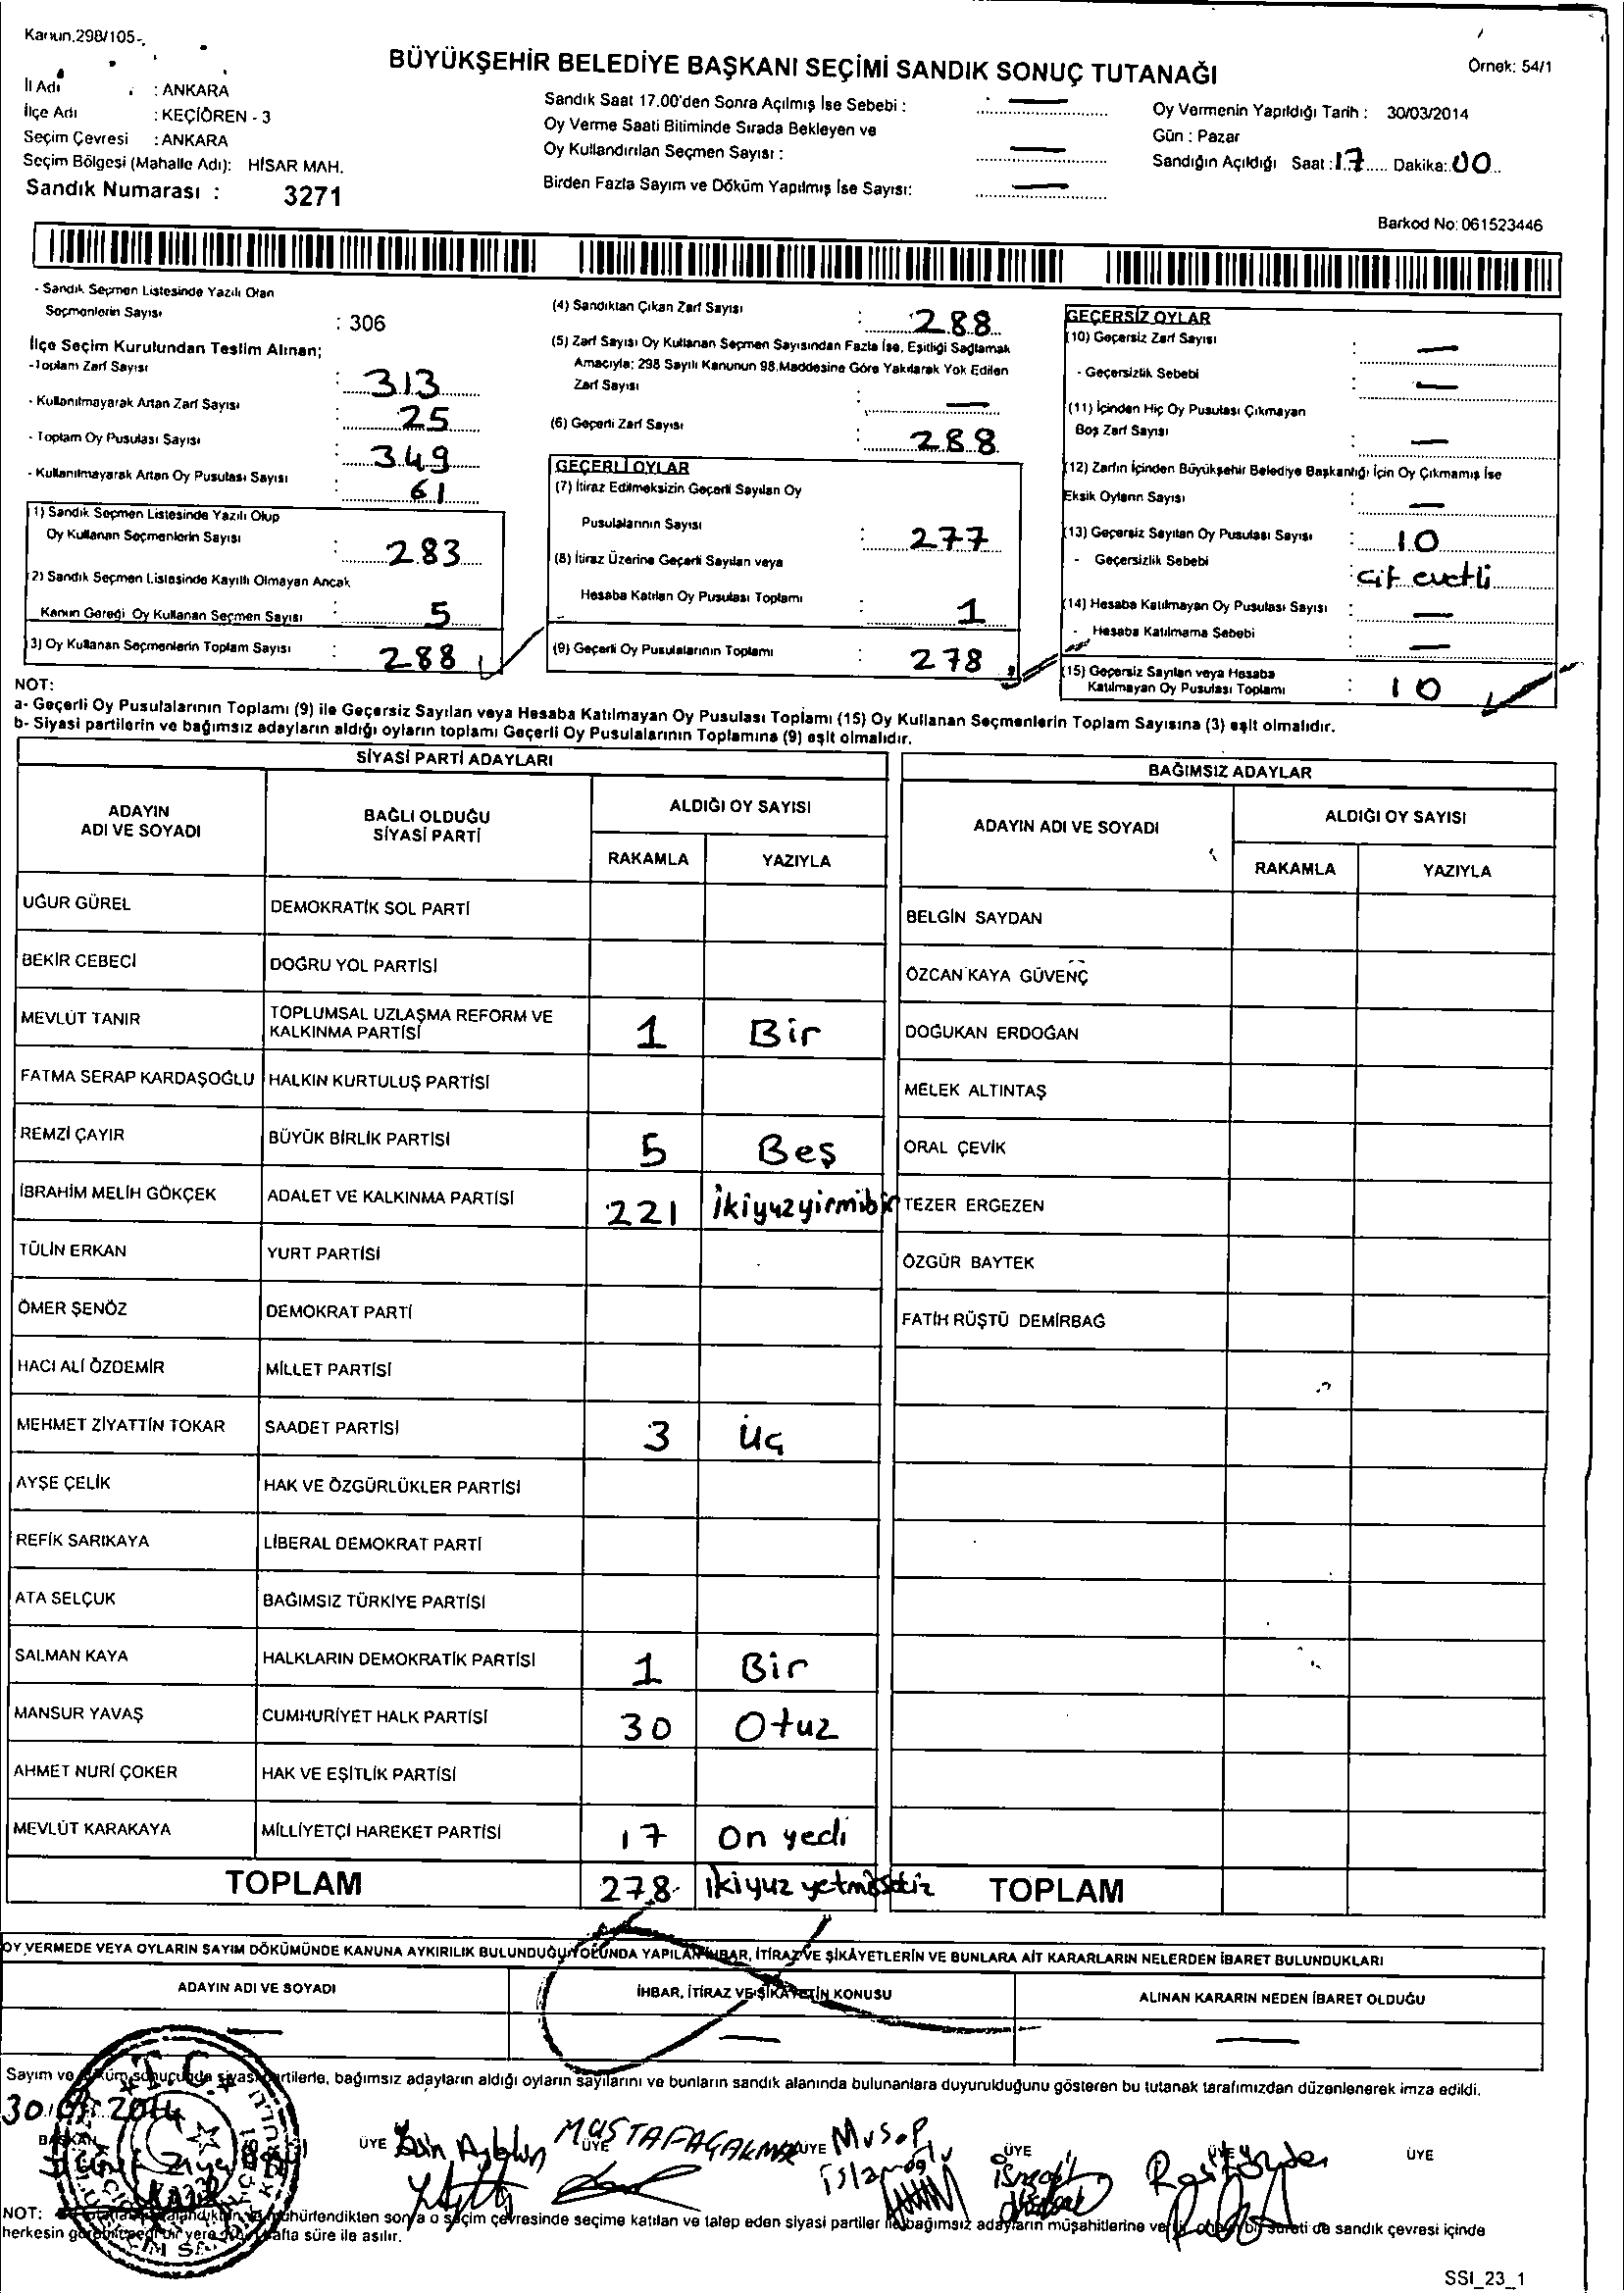 Kanun.298/105-
Örnek: 54/1
BÜYÜKŞEHİR BELEDİYE BAŞKANI SEÇİMİ SANDIK SONUÇ TUTANAĞI
İl Adı : ANKARA
İlçe Adı : KEÇİÖREN - 3
Seçim Çevresi : ANKARA
Seçim Bölgesi (Mahalle Adı): HİSAR MAH.
Sandık Numarası : 3271
Sandık Saat 17.00'den Sonra Açılmış İse Sebebi : —
Oy Verme Saati Bitiminde Sırada Bekleyen ve
Oy Kullandırılan Seçmen Sayısı : —
Birden Fazla Sayım ve Döküm Yapılmış İse Sayısı: —
Oy Vermenin Yapıldığı Tarih : 30/03/2014
Gün : Pazar
Sandığın Açıldığı Saat : 17 Dakika: 00
Barkod No: 061523446
- Sandık Seçmen Listesinde Yazılı Olan
Seçmenlerin Sayısı : 306
İlçe Seçim Kurulundan Teslim Alınan;
- Toplam Zarf Sayısı : 313
- Kullanılmayarak Artan Zarf Sayısı : 25
- Toplam Oy Pusulası Sayısı : 349
- Kullanılmayarak Artan Oy Pusulası Sayısı : 61
1) Sandık Seçmen Listesinde Yazılı Olup
Oy Kullanan Seçmenlerin Sayısı : 283
2) Sandık Seçmen Listesinde Kayıtlı Olmayan Ancak
Kanun Gereği Oy Kullanan Seçmen Sayısı : 5
3) Oy Kullanan Seçmenlerin Toplam Sayısı : 288
(4) Sandıktan Çıkan Zarf Sayısı : 288
(5) Zarf Sayısı Oy Kullanan Seçmen Sayısından Fazla İse, Eşitliği Sağlamak
Amacıyla; 298 Sayılı Kanunun 98.Maddesine Göre Yakılarak Yok Edilen
Zarf Sayısı : —
(6) Geçerli Zarf Sayısı : 288
GEÇERLİ OYLAR
(7) İtiraz Edilmeksizin Geçerli Sayılan Oy
Pusulalarının Sayısı : 277
(8) İtiraz Üzerine Geçerli Sayılan veya
Hesaba Katılan Oy Pusulası Toplamı : 1
(9) Geçerli Oy Pusulalarının Toplamı : 278
GEÇERSİZ OYLAR
(10) Geçersiz Zarf Sayısı : —
- Geçersizlik Sebebi : —
(11) İçinden Hiç Oy Pusulası Çıkmayan
Boş Zarf Sayısı : —
(12) Zarfın İçinden Büyükşehir Belediye Başkanlığı İçin Oy Çıkmamış İse
Eksik Oyların Sayısı : —
(13) Geçersiz Sayılan Oy Pusulası Sayısı : 10
- Geçersizlik Sebebi : Çift evetli
(14) Hesaba Katılmayan Oy Pusulası Sayısı : —
- Hesaba Katılmama Sebebi : —
(15) Geçersiz Sayılan veya Hesaba
Katılmayan Oy Pusulası Toplamı : 10
NOT:
a- Geçerli Oy Pusulalarının Toplamı (9) ile Geçersiz Sayılan veya Hesaba Katılmayan Oy Pusulası Toplamı (15) Oy Kullanan Seçmenlerin Toplam Sayısına (3) eşit olmalıdır.
b- Siyasi partilerin ve bağımsız adayların aldığı oyların toplamı Geçerli Oy Pusulalarının Toplamına (9) eşit olmalıdır.
SİYASİ PARTİ ADAYLARI
ADAYIN ADI VE SOYADI BAĞLI OLDUĞU SİYASİ PARTİ ALDIĞI OY SAYISI
RAKAMLA YAZIYLA
UĞUR GÜREL DEMOKRATİK SOL PARTİ
BEKİR CEBECİ DOĞRU YOL PARTİSİ
MEVLÜT TANIR TOPLUMSAL UZLAŞMA REFORM VE KALKINMA PARTİSİ 1 Bir
FATMA SERAP KARDAŞOĞLU HALKIN KURTULUŞ PARTİSİ
REMZİ ÇAYIR BÜYÜK BİRLİK PARTİSİ 5 Beş
İBRAHİM MELİH GÖKÇEK ADALET VE KALKINMA PARTİSİ 221 ikiyuzyirmibir
TÜLİN ERKAN YURT PARTİSİ
ÖMER ŞENÖZ DEMOKRAT PARTİ
HACI ALİ ÖZDEMİR MİLLET PARTİSİ
MEHMET ZİYATTİN TOKAR SAADET PARTİSİ 3 üç
AYŞE ÇELİK HAK VE ÖZGÜRLÜKLER PARTİSİ
REFİK SARIKAYA LİBERAL DEMOKRAT PARTİ
ATA SELÇUK BAĞIMSIZ TÜRKİYE PARTİSİ
SALMAN KAYA HALKLARIN DEMOKRATİK PARTİSİ 1 Bir
MANSUR YAVAŞ CUMHURİYET HALK PARTİSİ 30 Otuz
AHMET NURİ ÇOKER HAK VE EŞİTLİK PARTİSİ
MEVLÜT KARAKAYA MİLLİYETÇİ HAREKET PARTİSİ 17 On yedi
TOPLAM 278 ikiyuz yetmişsekiz
BAĞIMSIZ ADAYLAR
ADAYIN ADI VE SOYADI ALDIĞI OY SAYISI
RAKAMLA YAZIYLA
BELGİN SAYDAN
ÖZCAN KAYA GÜVENÇ
DOĞUKAN ERDOĞAN
MELEK ALTINTAŞ
ORAL ÇEVİK
TEZER ERGEZEN
ÖZGÜR BAYTEK
FATİH RÜŞTÜ DEMİRBAĞ
TOPLAM
OY VERMEDE VEYA OYLARIN SAYIM DÖKÜMÜNDE KANUNA AYKIRILIK BULUNDUĞU YOLUNDA YAPILAN İHBAR, İTİRAZ VE ŞİKÂYETLERİN VE BUNLARA AİT KARARLARIN NELERDEN İBARET BULUNDUKLARI
ADAYIN ADI VE SOYADI İHBAR, İTİRAZ VE ŞİKAYETİN KONUSU ALINAN KARARIN NEDEN İBARET OLDUĞU
— — —
Sayım ve döküm sonucunda siyasi partilerle, bağımsız adayların aldığı oyların sayılarını ve bunların sandık alanında bulunanlara duyurulduğunu gösteren bu tutanak tarafımızdan düzenlenerek imza edildi.
30/03/2014
BAŞKAN ÜYE ÜYE MUSTAFA ÜYE Musa ÜYE ÜYE ÜYE
T.C.
NOT: mühürlendikten sonra o seçim çevresinde seçime katılan ve talep eden siyasi partiler ile bağımsız adayların müşahitlerine de sandık çevresi içinde
herkesin görebileceği bir yere hafta süre ile asılır.
SSI_23_1